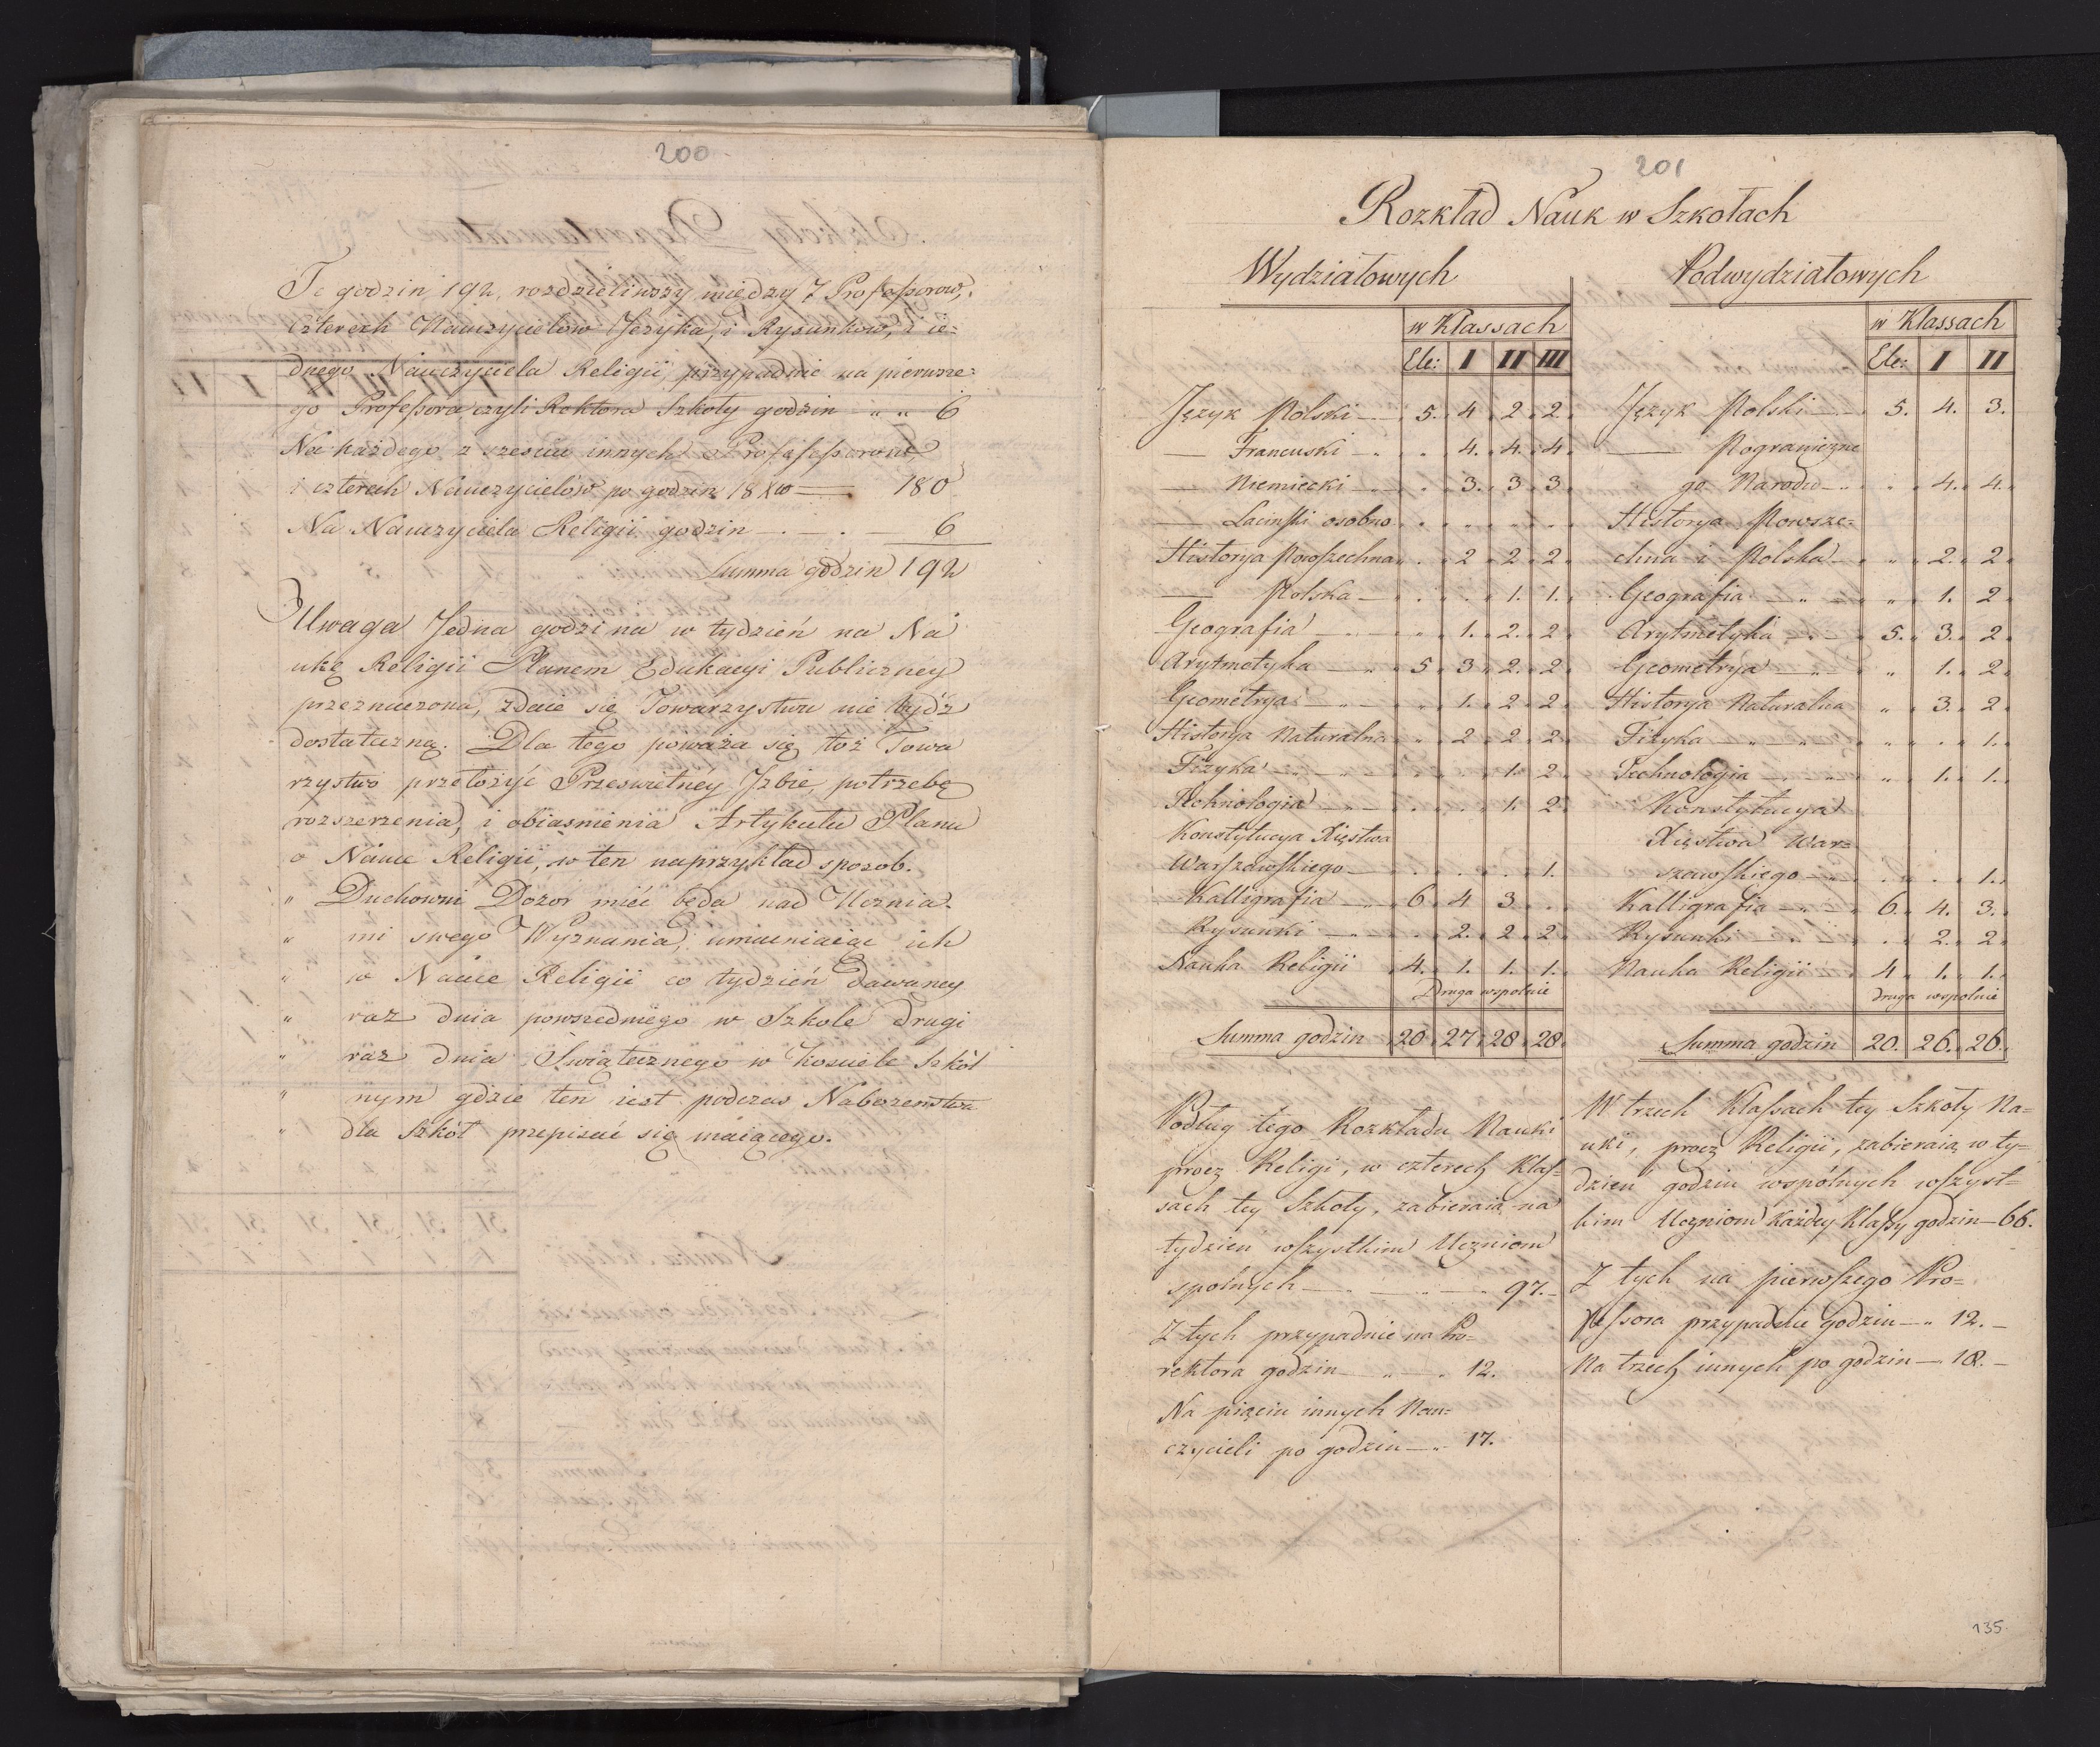 200
Te godzin 192, rozdzieliwszy między 7 Professorow,
czterech Nauczycielow Języka, i Rysunkow, i ie=
dnego Nauczyciela Religii, przypadnie na pierwsze=
go Professora czyli Rektora Szkoły godzin „ „ 6
Na każdego z sześciu innych Professorow
i czterech Nauczycielów po godzin 18 — 180
Na Nauczyciela Religii godzin — . — . — 6
Summa godzin 192
Uwaga Jedna godzina w tydzień na Na
ukę Religii Planem Edukacyi Publiczney
przeznaczona, zdaie się Towarzystwu nie bydź
dostateczną. Dla tego poważa się toż Towa
rzystwo przełożyć Prześwietney Izbie, potrzebę
rozszerzenia, i obiaśnienia Artykułu Planu
o Nauce Religii, w ten naprzykład sposob.
„ Duchowni Dozor mieć będą nad Ucznia=
„ mi swego Wyznania, umacniaiąc ich
„ w Nauce Religii co tydzień dawaney
„ raz dnia powszedniego w Szkole drugi
„ raz dnia Swiątecznego w kosciele Szkol
„ nym gdzie ten iest podczas Nabozenstwa
„ dla Szkół przepisać się maiącego.
201
Rozkład Nauk w Szkołach
Wydziałowych
w Klassach
Ele: I II III
Język Polski — 5. 4 2. 2.
— Francuski — . . 4. 4. 4.
— Niemiecki — . 3. 3. 3.
— Łaciński osobno . „ „ .
Historya Powszechna . 2 2. 2.
— Polska — . . 1. 1.
Geografia — „ — „ 1. 2. 2.
Arytmetyka — „ 5. 3. 2. 2.
Geometrya — „ — „ 1. 2. 2.
Historya Naturalna „ 2 2. 2.
Fizyka — „ — . . 1. 2.
Technologia — „ — . . 1. 2.
Konstytucya Xięstwa
Warszawskiego — . . . 1.
Kalligrafia — „ 6. 4 3 .
Rysunki — „ — . 2. 2. 2.
Nauka Religii 4. 1. 1. 1.
Druga wspolnie
Summa godzin 20 27. 28. 28.
Podług tego Rozkładu Nauki
procz Religi, w czterech Klas=
sach tey Szkoły, zabieraią na
tydzien wszystkim Uczniom
spolnych — . — . — 97. —
Z tych przypadnie na Pro=
rektora godzin — „ — . 12.
Na pięciu innych Nau=
czycieli po godzin — „ 17.
Podwydziałowych
w Klassach
Ele: I II
Język Polski — 5. 4. 3.
— Pograniczne
go Narodu — . . 4. 4.
Historya Powsze=
chna i Polska — „ 2. 2
Geografia — „ — „ 1. 2
Arytmetyka — „ — 5. 3. 2
Geometrya — „ — „ 1. 2.
Historya Naturalna „ 3. 2
Fizyka — „ — „ „ . 1.
Technologia — . „ „ 1. 1.
Konstytucya
Xięstwa War=
szawskiego — „ . . 1.
Kalligrafia — „ — 6. 4. 3.
Rysunki — . . 2. 2.
Nauka Religii 4 1. 1.
druga wspolnie
Summa godzin 20. 26. 26.
W trzech Klassach tey Szkoły Na=
uki, procz Religii, zabieraią w ty=
dzień godzin wspólnych wszyst=
kim Uczniom każdey Klassy godzin — 66.
Z tych na pierwszego Pro=
fessora przypadnie godzin — „ 12. —
Na trzech innych po godzin — 18. —
135